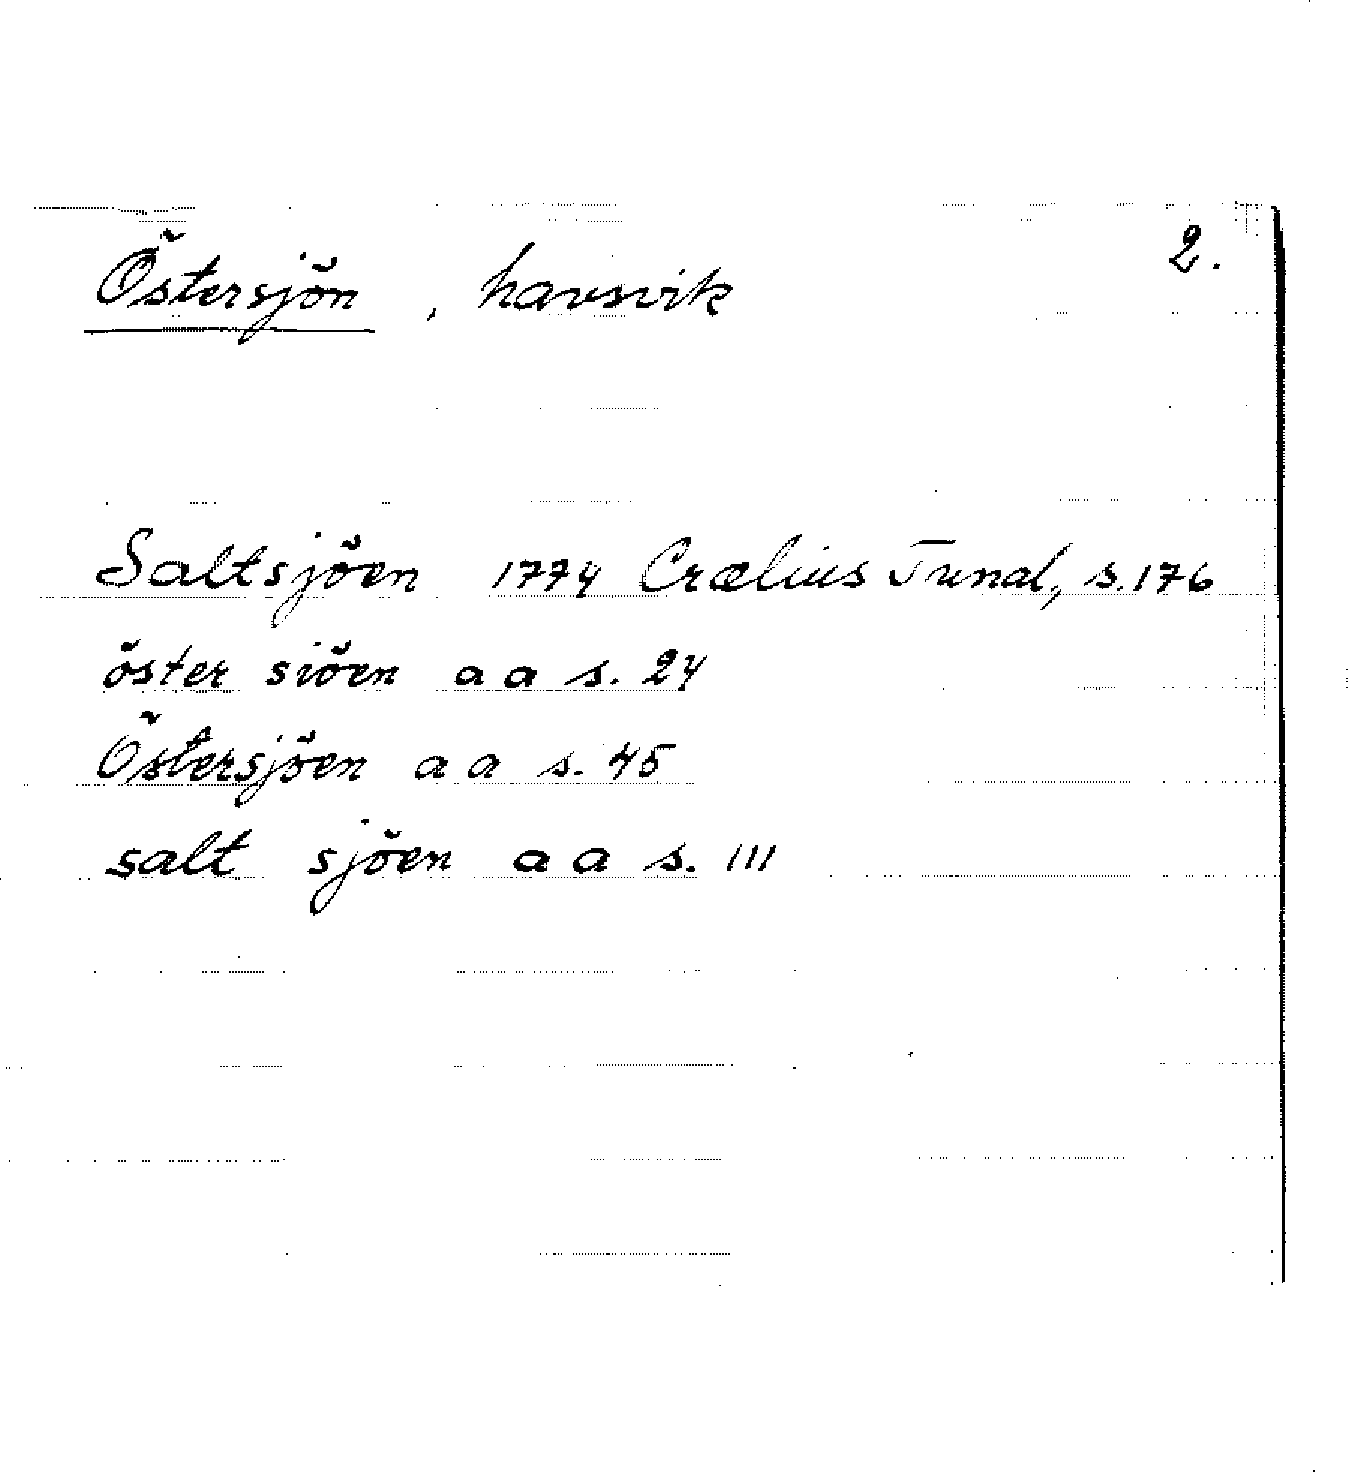 Östersjön, havsvik 2.
Saltsjöen 1774 Crælius Tunal, s. 176
öster siöen a a s. 24
Östersjöen a a s. 45
salt sjöen a a s. 111